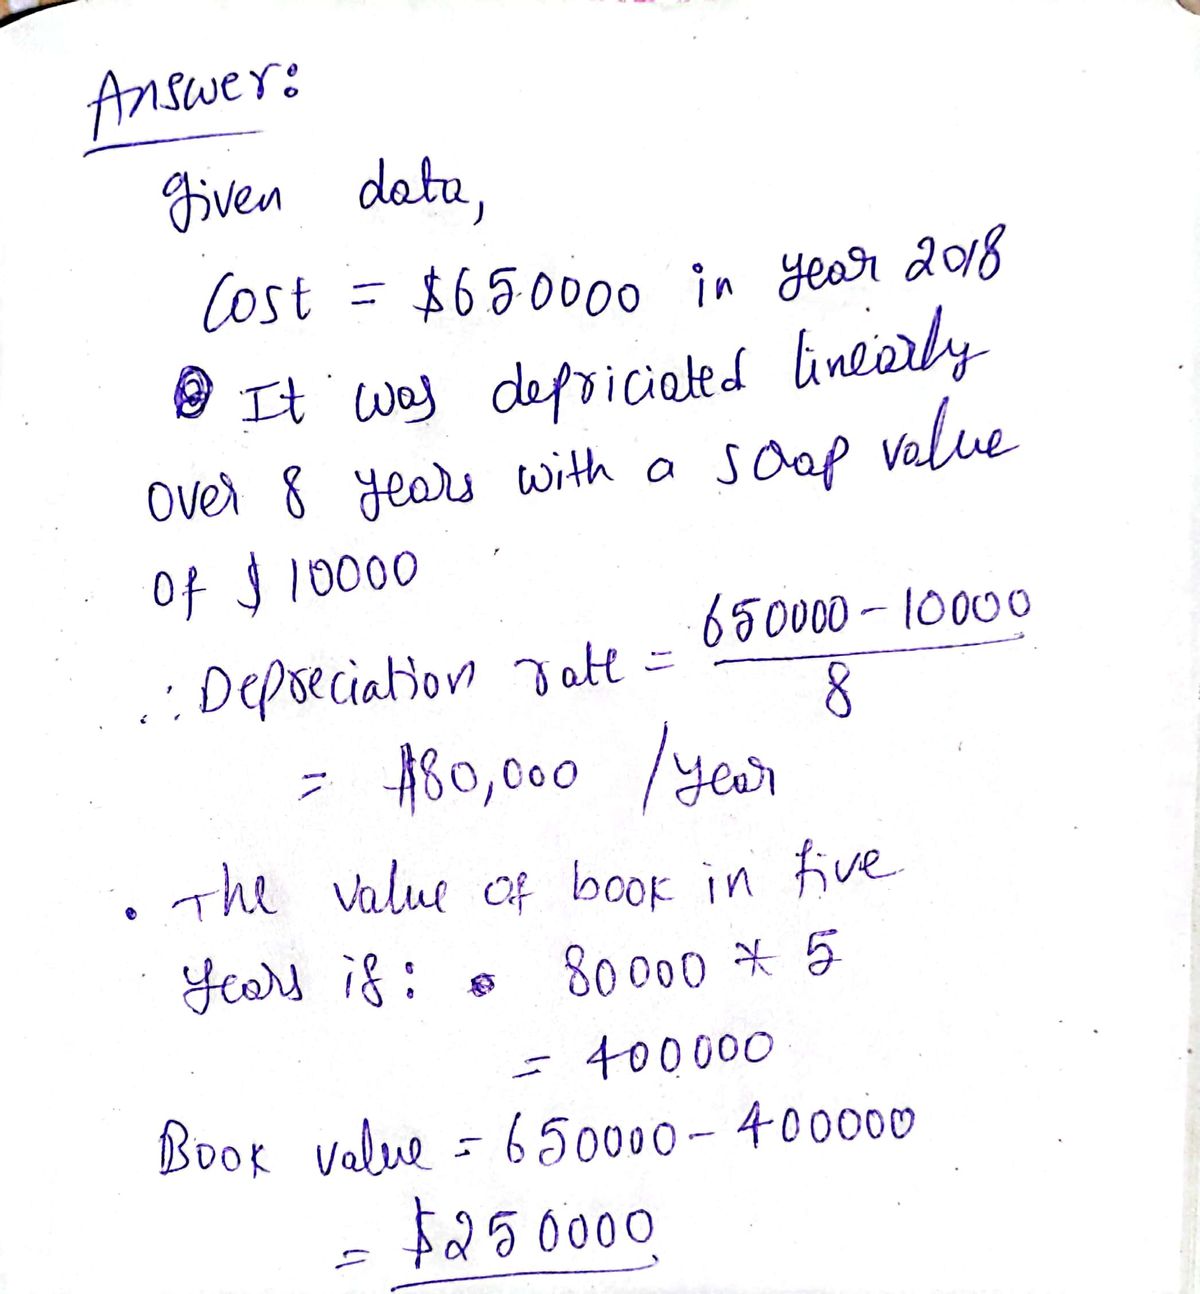 Answer:
given data,
Cost = $650000 in year 2018
It was depriciated linearly
over 8 years with a scrap value
of $ 10000
∴ Depreciation rate = 650000 - 10000
8
= $80,000 /year
• The value of book in five
years is: • 80000 * 5
= 400000
Book value = 650000 - 400000
= $250000